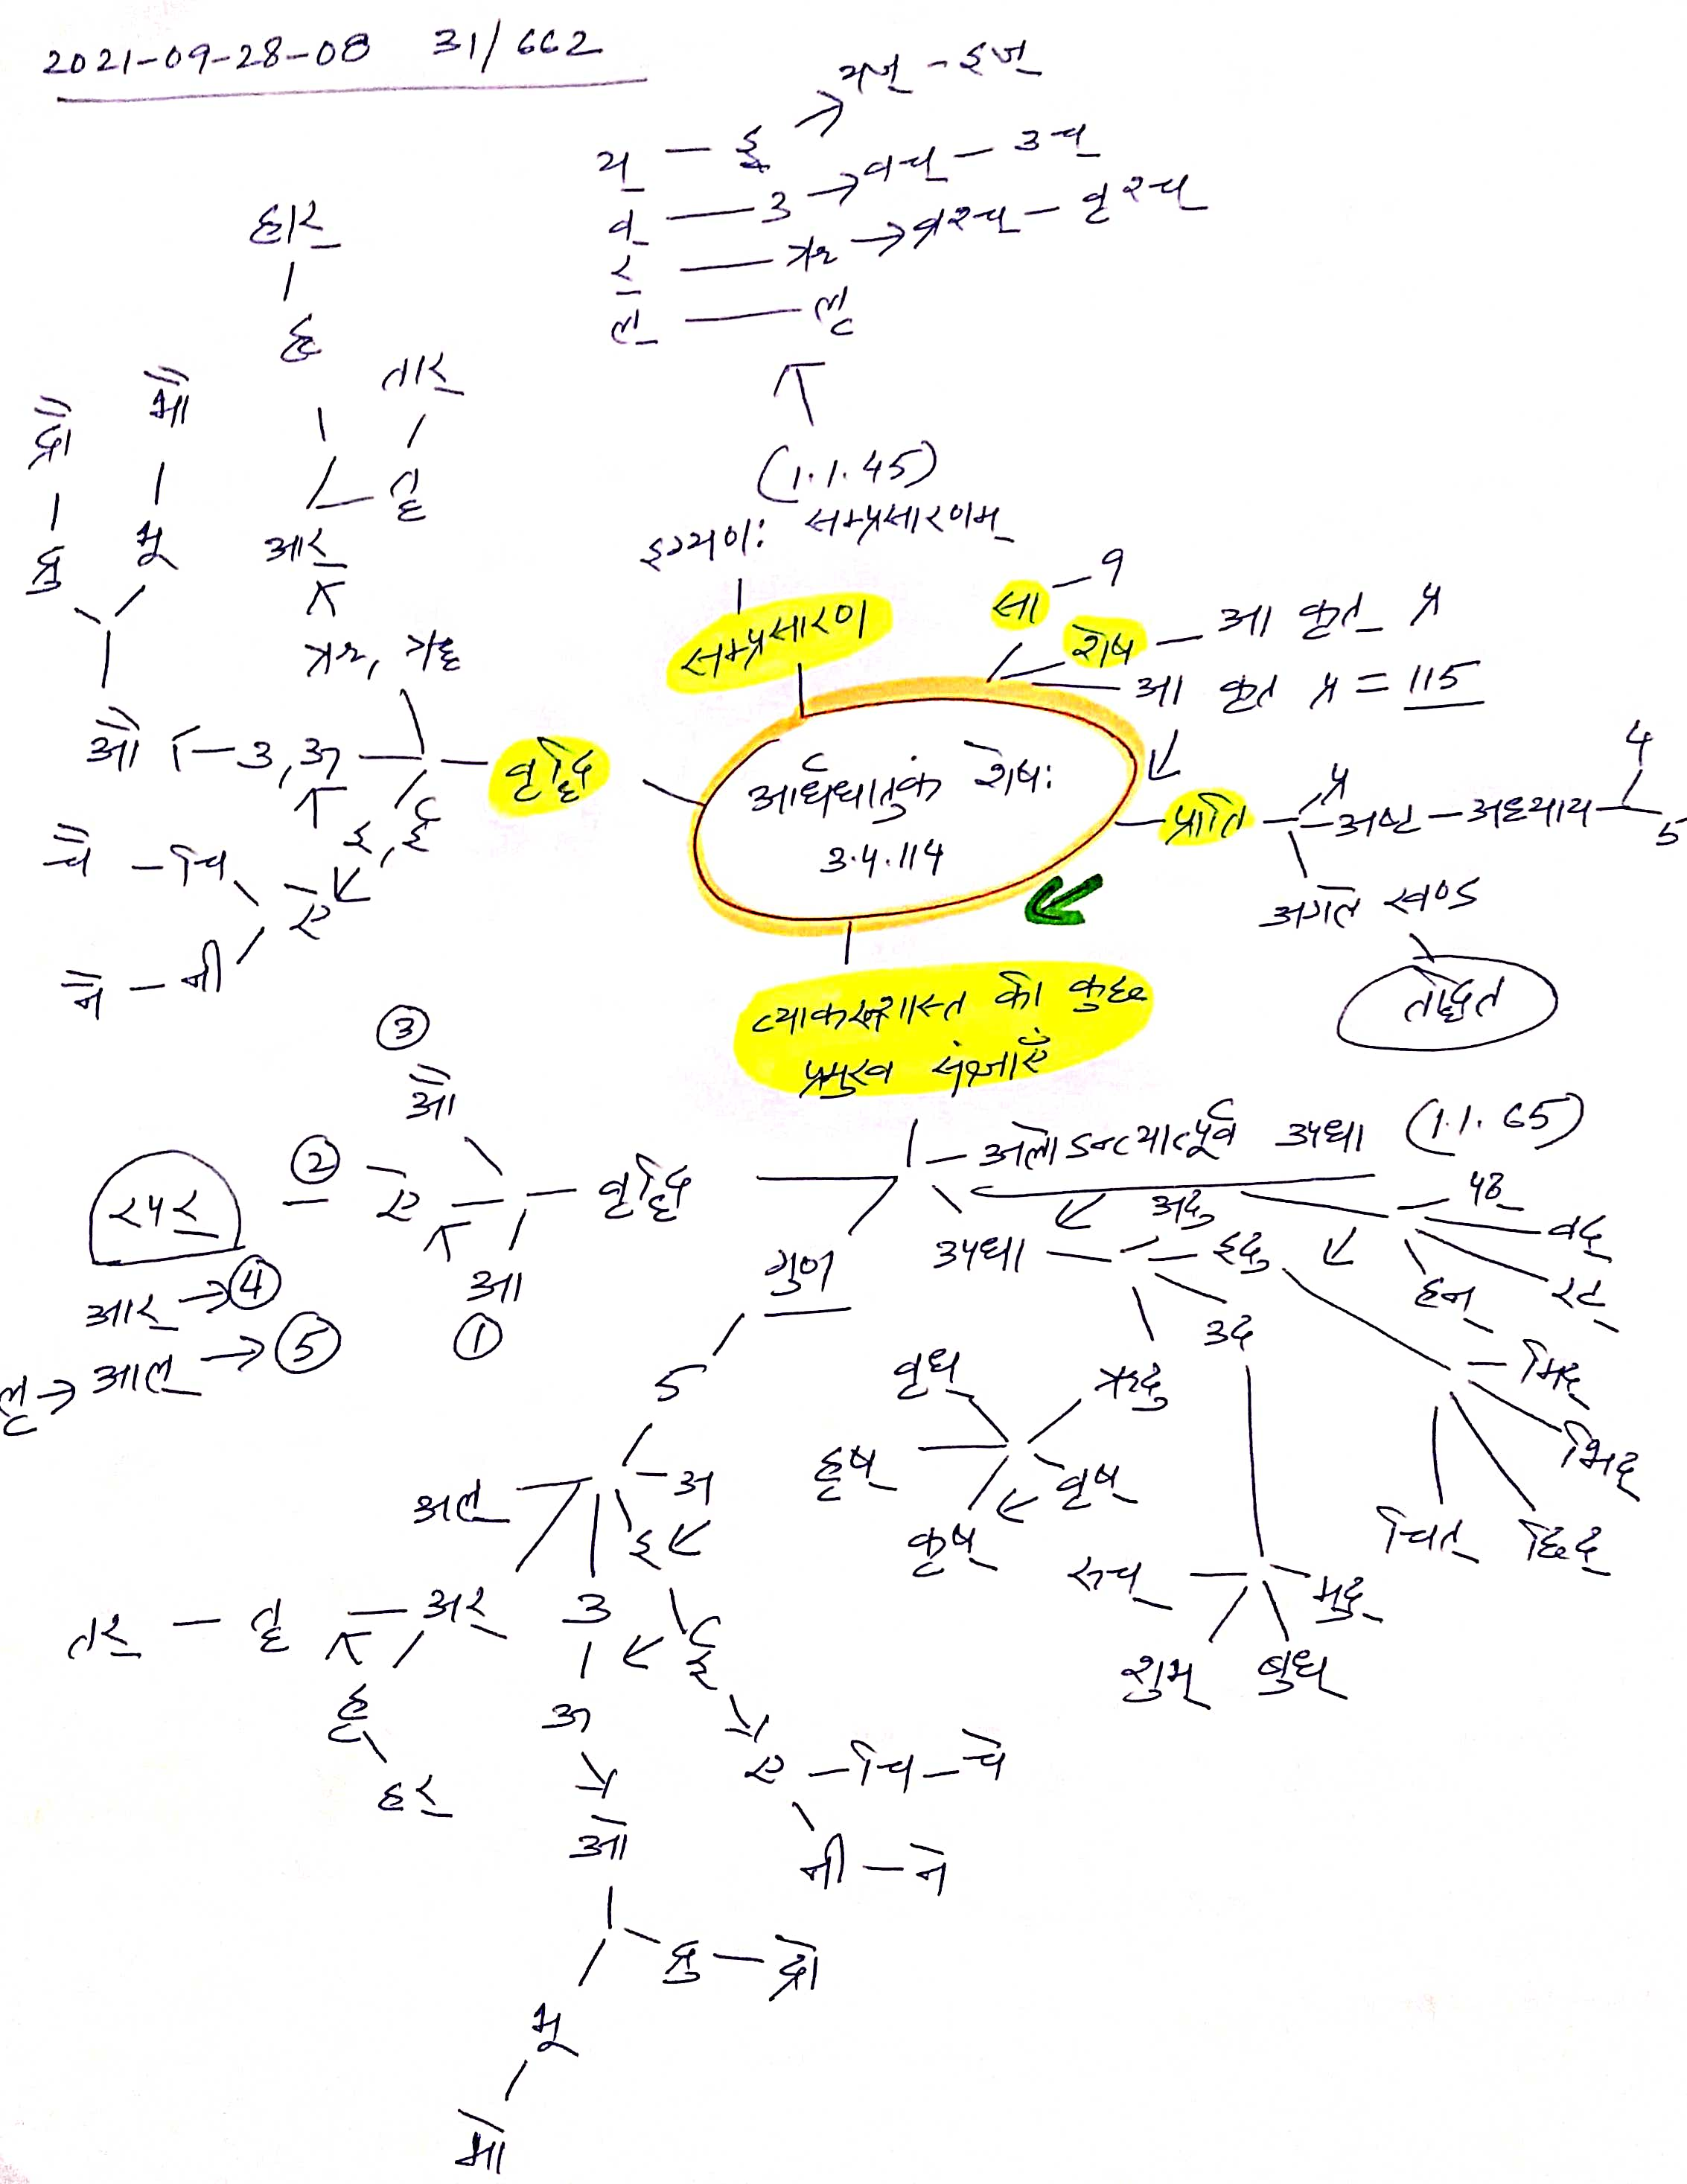 2021-09-28-08 31/662
य् — इ → यज् - इज्
व् — उ → वच् — उच्
र् — ऋ → व्रश्च् — वृश्च्
ल् — लृ
(1.1.45)
इग्यणः सम्प्रसारणम्
सम्प्रसारण
हार्
हृ
तार्
तॄ
आर्
ऋ, ॠ
द्रौ
द्रु
भौ
भू
औ — उ, ऊ — वृद्धि
इ, ई
चै — चि
ऐ
नै — नी
सा — 9
शेष — आ कृत् प्र
आ कृत् प्र = 115
आर्धधातुकं शेषः
3.4.114
प्राप्ति — प्र
अष्टा — अध्याय — 4
5
अगले खण्ड
तद्धित
व्याकरणशास्त्र की कुछ
प्रमुख संज्ञाएँ
अलोऽन्त्यात्पूर्व उपधा (1.1.65)
③
औ
② ऐ — वृद्धि
रपर्
आ
①
आर् → ④
लृ → आल् → ⑤
गुण
5
उपधा — अदु
इदु
उदु
ऋदु
पठ्
वद्
रट्
हन्
मिद्
भिद्
छिद्
चित्
वृध्
हृष्
कृष्
वृष्
रुच्
मुद्
शुभ्
बुध्
अल्
अ
इ
तर् — तॄ — अर्
उ
ई
हृ
हर्
ऊ
ए — चि — चे
ओ
नी — ने
द्रु — द्रो
भू
भो